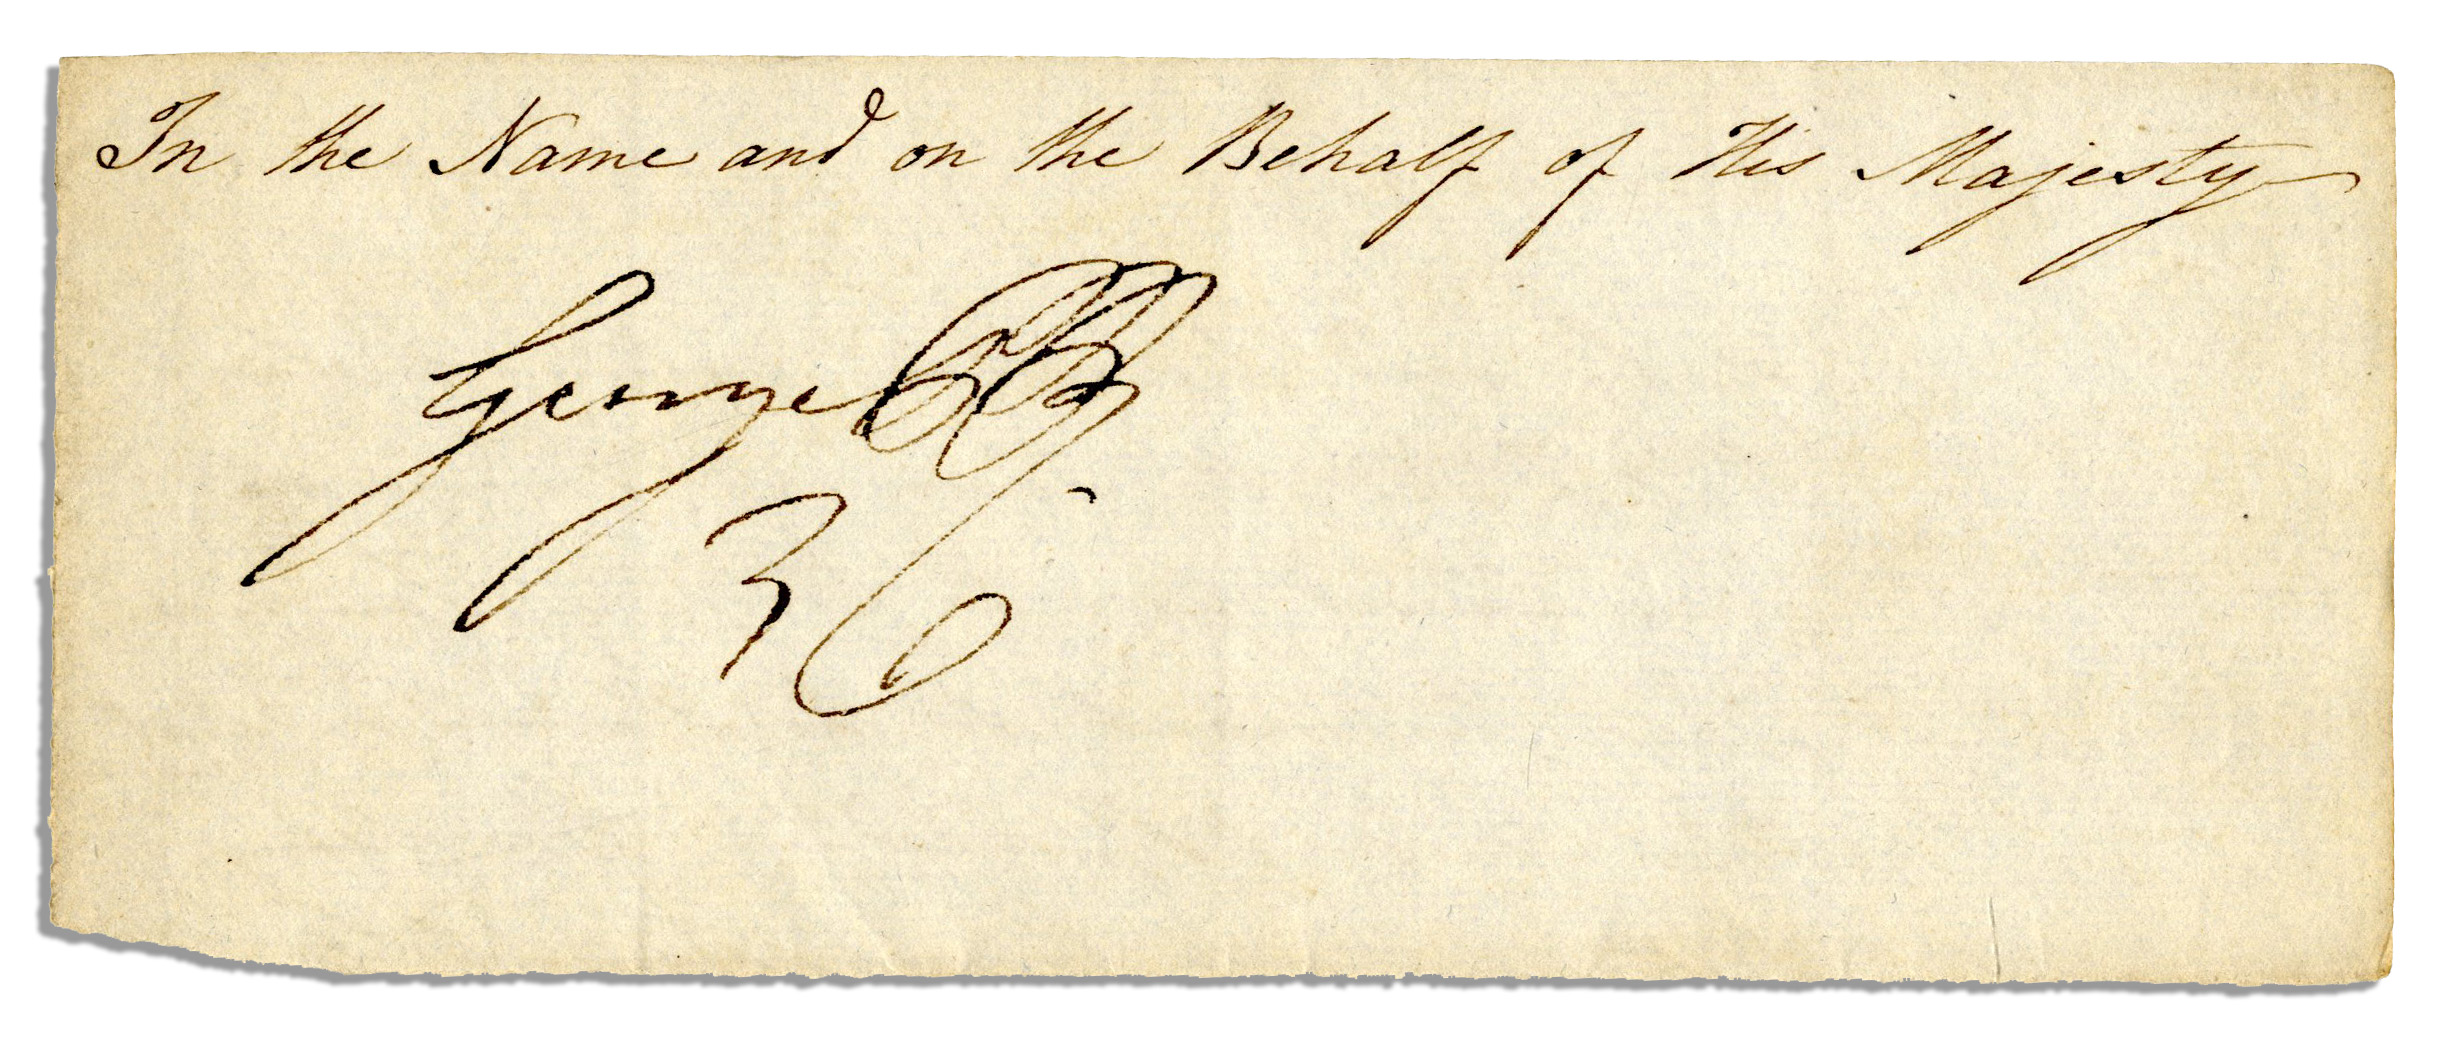 In the Name and on the Behalf of His Majesty
George